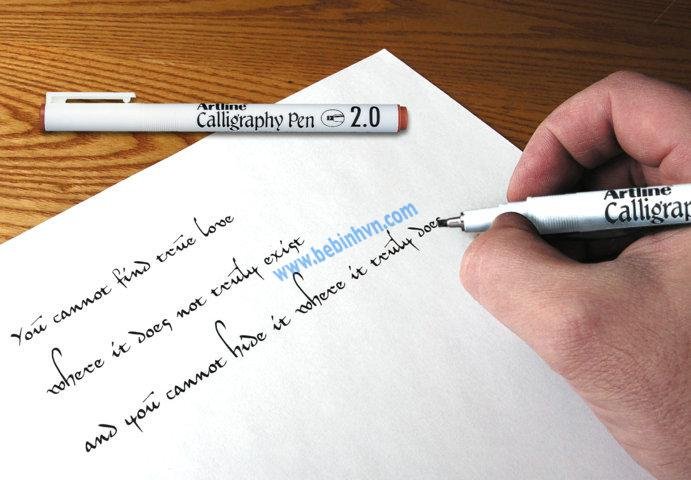 Artline
Calligraphy Pen 2.0
Artline
Calligrap
www.bebinhvn.com
You cannot find true love
where it does not truly exist
and you cannot hide it where it truly does